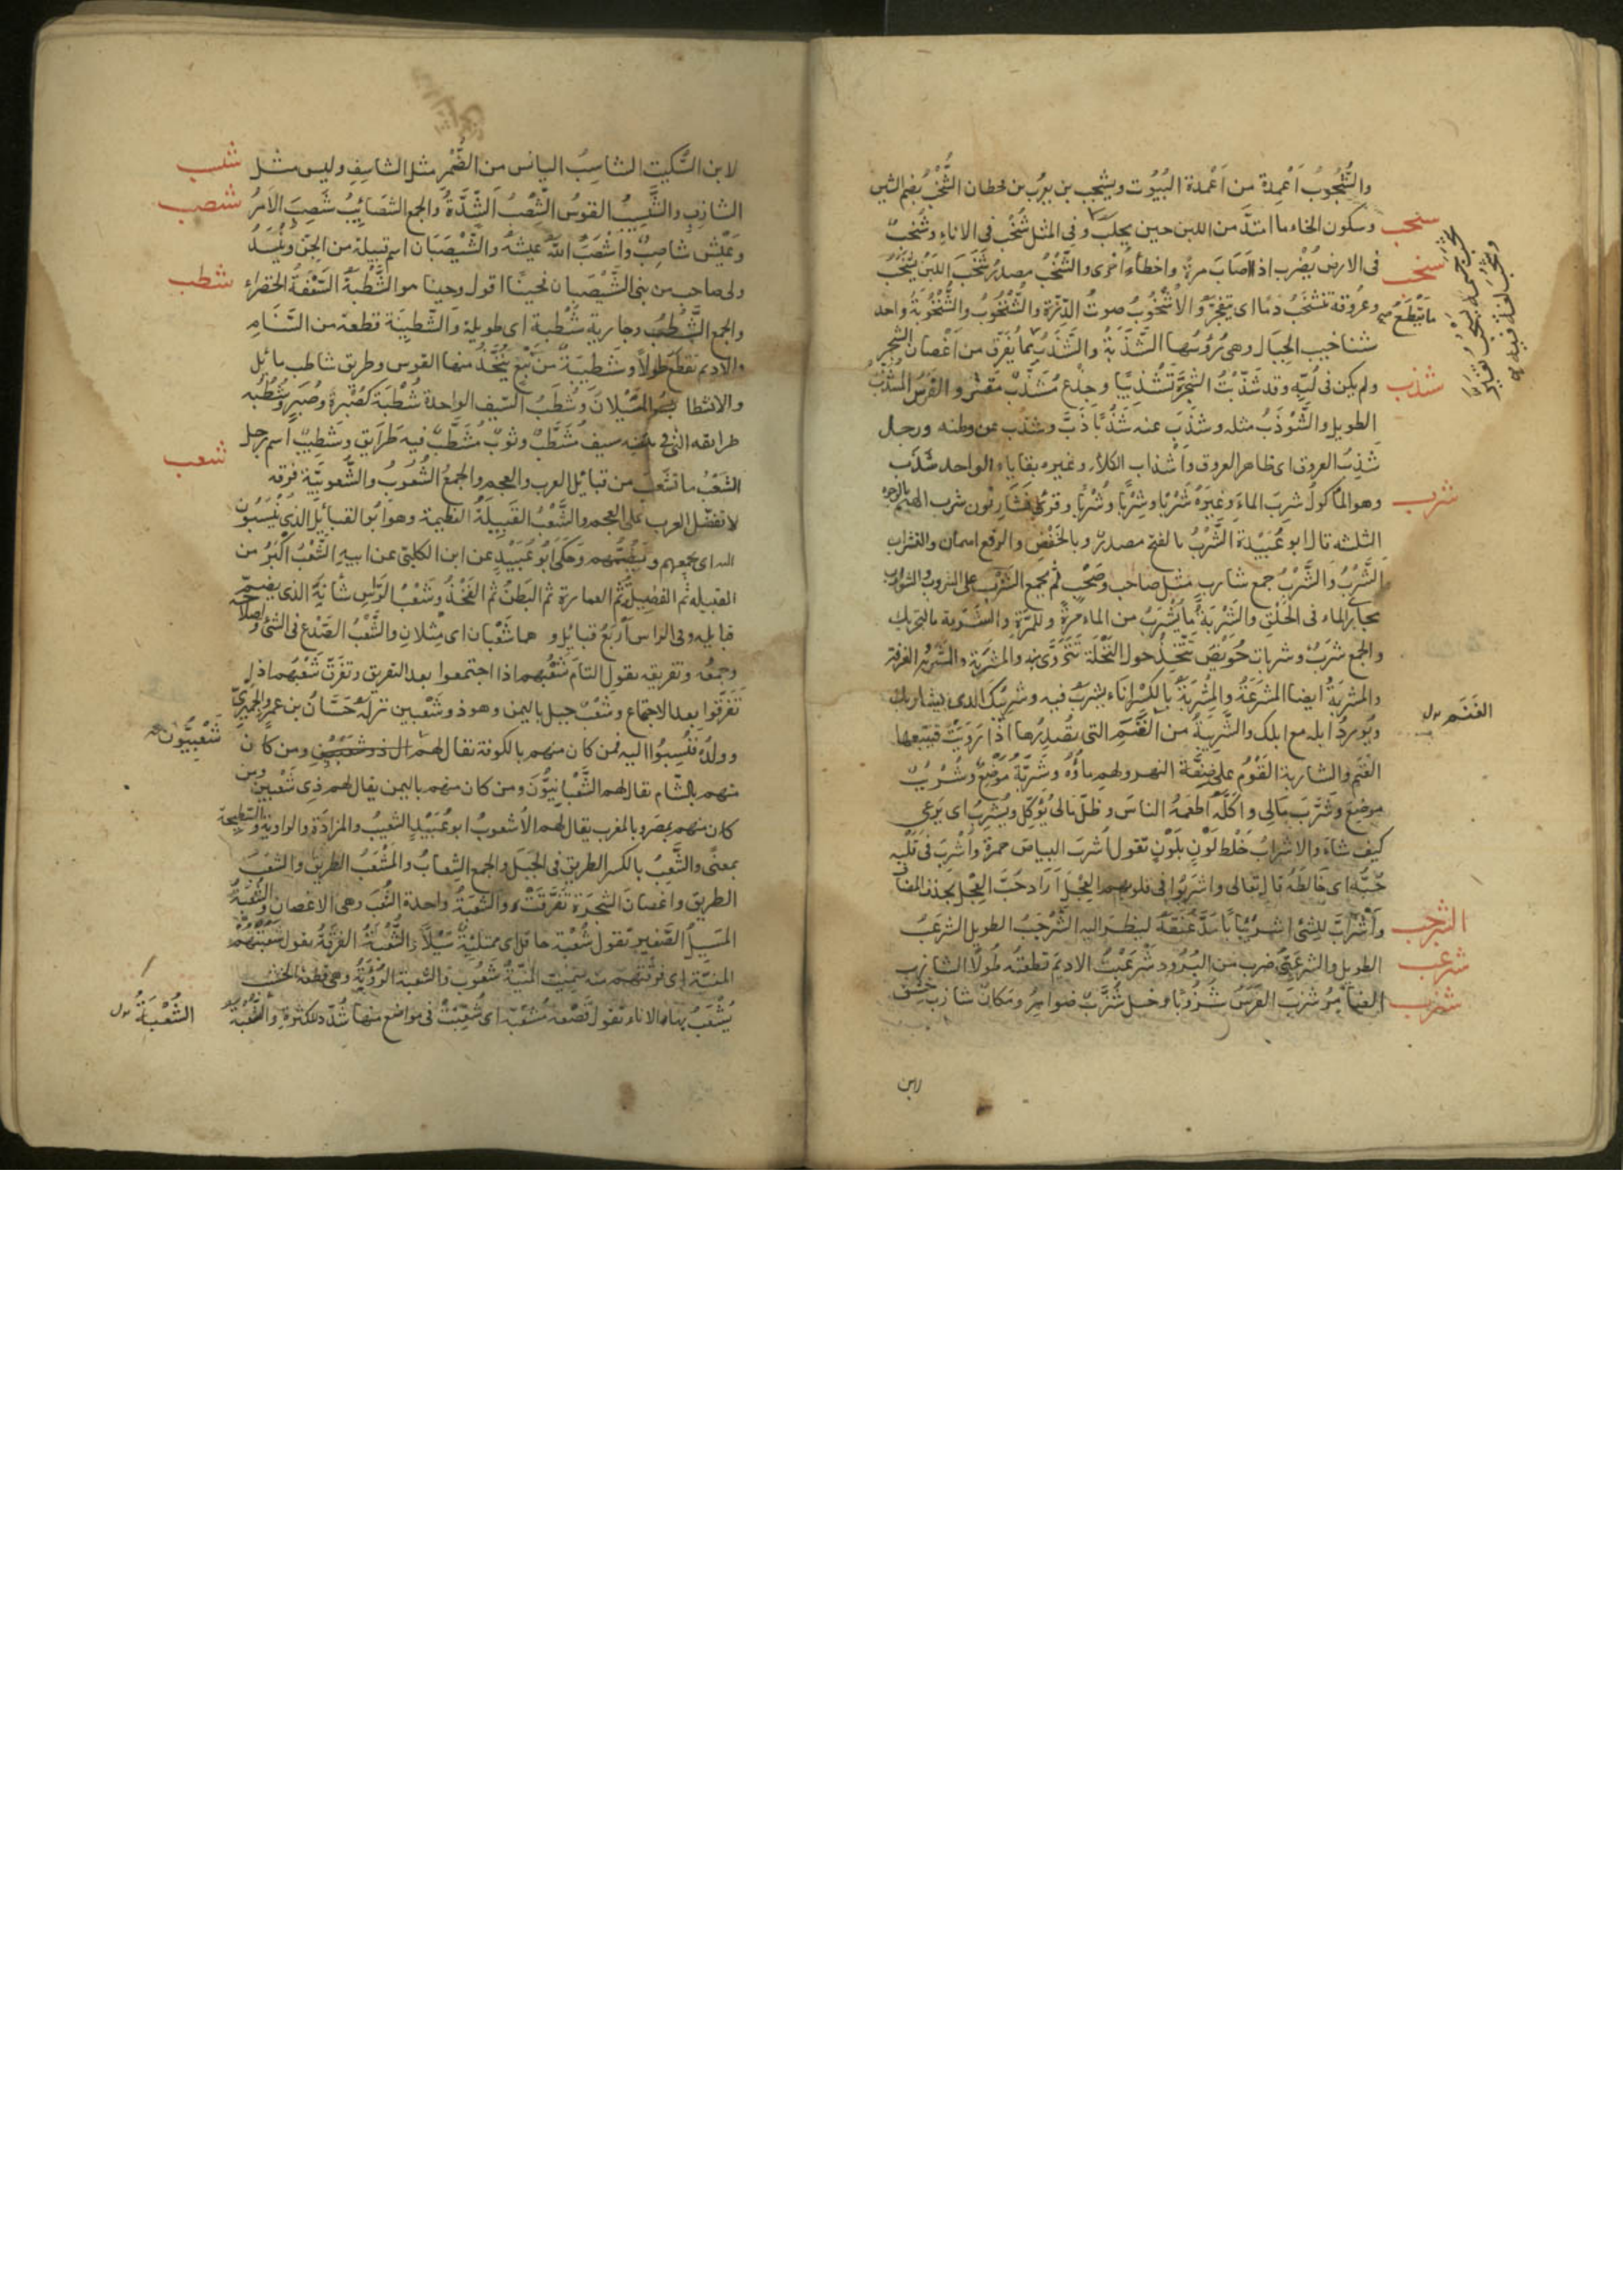 والشُّجُوبُ اَعْمِدة من اَعْمدة البُيُوت ويشجب بن يعرُب بن قحطان الشُّخْبُ بضم الشين
سخب وسكون الخاء ما امتدَّ من اللبن حين يحلب وفى المثل شُخْبٌ فى الاناءِ وشُخْبٌ
فى الارض يُضْرب اذا اَصَابَ مرةً واخطأ اُخرى والشَّخْبُ مصدرُ شَخَبَ اللبَنُ يَشْخُبُ
وعُروقه تنشخبُ دمًا اى يتفجّرُ والاُشْخُوبُ صوتُ الدِّرَّة والشُّنْخُوبُ والشُّنْخُوبَةُ واحد
شناخيب الجبَال وهى رُؤُسُها الشَّذَبَةُ والشَّذَبُ ما يُفَرَّق من اَغْصان الشجر
شذب ولم يكن فى لُبِّهِ وقد شَذّبْتُ الشجرَةَ تَشْذيبًا وجِذع مُشَذَّبٌ مقشر والفرَسُ المُشَذَّبُ
الطويل والشَّوْذَبُ مثله وشذَبَ عنه شَذْبًا ذَبَّ وشذب عن وطنه ورجل
شَذِبُ العروق اى ظاهر العروق واَشذاب الكلأ وغيره بقاياه الواحد شَذَب
شرب وهو المأكولُ شرِبَ الماءَ وغيرَه شَرْبًا وشِرْبًا وشُرْبًا وقرئ فشاربون شرب الهيم بالوجوه
الثلثه قال ابو عُبَيْدة الشَّرْبُ بالفتح مصدرٌ وبالخَفْضِ والرفع اسمان والشراب
الشُّرْبُ وَالشَّرْبُ جمع شارب مثل صاحب وصَحْبٍ ثم يجمع الشَّرْب على الشروب والشوارب
مجارى الماء فى الحَلْقِ والشُّرْبَةُ ما يُشْرَبُ من الماء مرةً وللمرَّةِ والشَّرَبة بالتحريك
والجمع شَرَبٌ وشربات حُوَيْض يُتّخذُ حول النخلة تتروَّى منه والمشربة والمشربة الغرفة
والمشربَةُ ايضا المشرَعَةُ والمِشْرَبَةُ بالكسْر انَاء يُشرَبُ فيه وشَرِيبُكَ الذى يشاربك
ويُورِدُ ابله مع ابلك والشَّرِيبةُ من الغَنَمِ التى تُصْدِرُها اذا رَوِيَتْ فتتبعها
الغنم والشاربة القَوْم على ضِفَّة النهر ولهم ماؤُه وشَرَبَّةُ مَوْضِعٌ وشُرْبُبٌ
موضع وشرَّبَ مَالِى واكَّلَه اَطعَمَهُ الناسَ وظلّ مَالى يُؤَكَّلُ ويُشرَّبُ اى يَرعى
كيفَ شاءَ والاشرابُ خَلْط لَوْنٍ بلَوْنٍ تقول اُشرب البياض حمرةً واُشْرِبَ فى قَلْبِه
حُبّه اى خَالَطَه قال تعالى واُشرِبُوا فى قلوبهم العِجْلَ اَرَادَ حُبَّ العِجْل بحذف المضاف
الشرجب واشْرَأَبَّ للشئ اشرِيْبابًا مَدَّ عُنقَه لينظر اليه الشَّرْجَبُ الطويل الشرعَبُ
شرعب الطويل والشرعَبِىُّ ضرب من البُرُود شَرْعَبْتُ الاديم قطعْتُه طُولًا الشازب
شزب الضامِرُ شَزَبَ الفرَسُ شُزُوبًا وخيل شُزَّبٌ ضوامِرُ ومكان شازب خشن
ما يَتقطّع صح
الغَنَم بدل
لابن
لابن السِّكِيت الشاسِبُ اليابس من الضُّمْرِ مثل الشاسِفِ وليس مثل شسب
الشازِب والشَّسِيْبُ القوسُ الشِّصْبُ الشِّدَّةُ والجمع الشَصَايِبُ شَصِبَ الاَمْرُ شصب
وعَيْش شاصِبٌ واَشْصَبَ اللهُ عيشَهُ والشَّيْصَبَان اسم قبيلة من الجنّ ويُنْشَدُ
ولى صاحب من بنى الشَّيْصَبان فحينًا اقول وحينا هو الشَّطْبَةُ السَّعْفَةُ الخضراء شطب
والجمع الشَّطْبُ وجارية شَطْبة اى طويلة والشَّطِيبَة قطعة من السَّنَام
والاديم تقطع طولًا وشَطِيبَةٌ من نَبْعٍ يُتَّخَذُ منها القوس وطريق شاطب مائل
والانشطا السَّيْلانَ وشُطَبُ السّيف الواحدة شُطْبَة كصُبْرة وصُبَرٍ وشُطُبُه
طرائقه التى فى متنه سيفٌ مُشَطَّبٌ وثوبٌ مُشَطَّبٌ فيه طَرايق وشَطِيبٌ اسم رجل
شعب الشَعْبُ ما تَشَعَّبَ من قبائل العرب والعجم والجمعُ الشُّعُوبُ والشُّعوبيَّة فِرقة
لا تفضّل العرب على العجم والشَّعْبُ القَبِيلَةُ العظيمة وهو اَبو القبائل الذى يُنْسَبُون
اليه اى يجمعهم ويَضُمُّهم وحكى ابُو عُبَيْدٍ عن ابن الكلبىّ عن ابيهِ الشَّعْبُ اكبرُ من
القبيله ثم الفَصِيلَةُ ثم العمارة ثم البَطنُ ثم الفَخِذُ وشَعْبُ الرَاْس شأنهُ الذى يضمّ
قبايله وفى الراس اَربَعُ قبائل و هما شَعْبان اى مِثْلان والشَّعْبُ الصَّدْع فى الشئ واصلاحه
وجمعُه وتفريقه يقول التأم شَعْبُهم اذا اجتمعوا بعد التفريق وتفرّق شَعْبُهم اذا
تفرّقوا بعد الاجتماع وشَعْبٌ جبل باليمن وهو ذو شَعْبين نزلَه حَسَّانُ بن عمرو الحميرىّ
وولدُه فنُسِبُوا اليه فمن كان منهم بالكوفة يقال لهم ومن كان شَعْبِيُّون
منهم بالشام يقال لهم الشَّعْبانِيُّونَ ومن كان منهم باليمن يقال لهم ذى شَعْبين ومن
كان منهم بمصر وبالمغرب يقال لهم الاُشعوبُ ابو عُبَيْدٍ الشعيبُ والمزادَة والراوية والسَّطِيحة
بمعنًى والشِّعْبُ بالكسر الطريق فى الجبَل والجمع الشِعابُ والمَشْعَبُ الطريق وانشعَبَ
الطريق واغصَانَ الشجرَة تَفَرَّقَتْ والشُّعْبَةُ واحدة الشُّعَبَ وهى الاغصان والشُّعْبَةُ
المَسِيلُ الصَّغير تقول شُعْبة حافل اى ممتلئة سَيْلًا والشُّعْبَةُ الفرقَةُ يقول شَعَبَتْهُم
المنيّة اى فَرّقَتْهُم منه سُمّيت المَنيّةُ شَعُوبَ والشعبة الرُؤْبَةُ وهى قطعة الخشب
يُشْعَبُ بها الاناء تقول قَصْعة مُشَعَّبَة اى شُعِّبَتْ فى مواضع منها شُدّد للكثرة
الشُعْبَةُ بدل